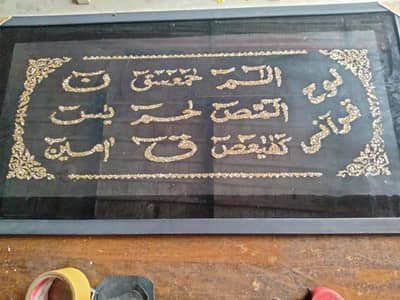 لوح
قرآنی
الم حمعسق ن
المص حم یس
کهیعص ق امین